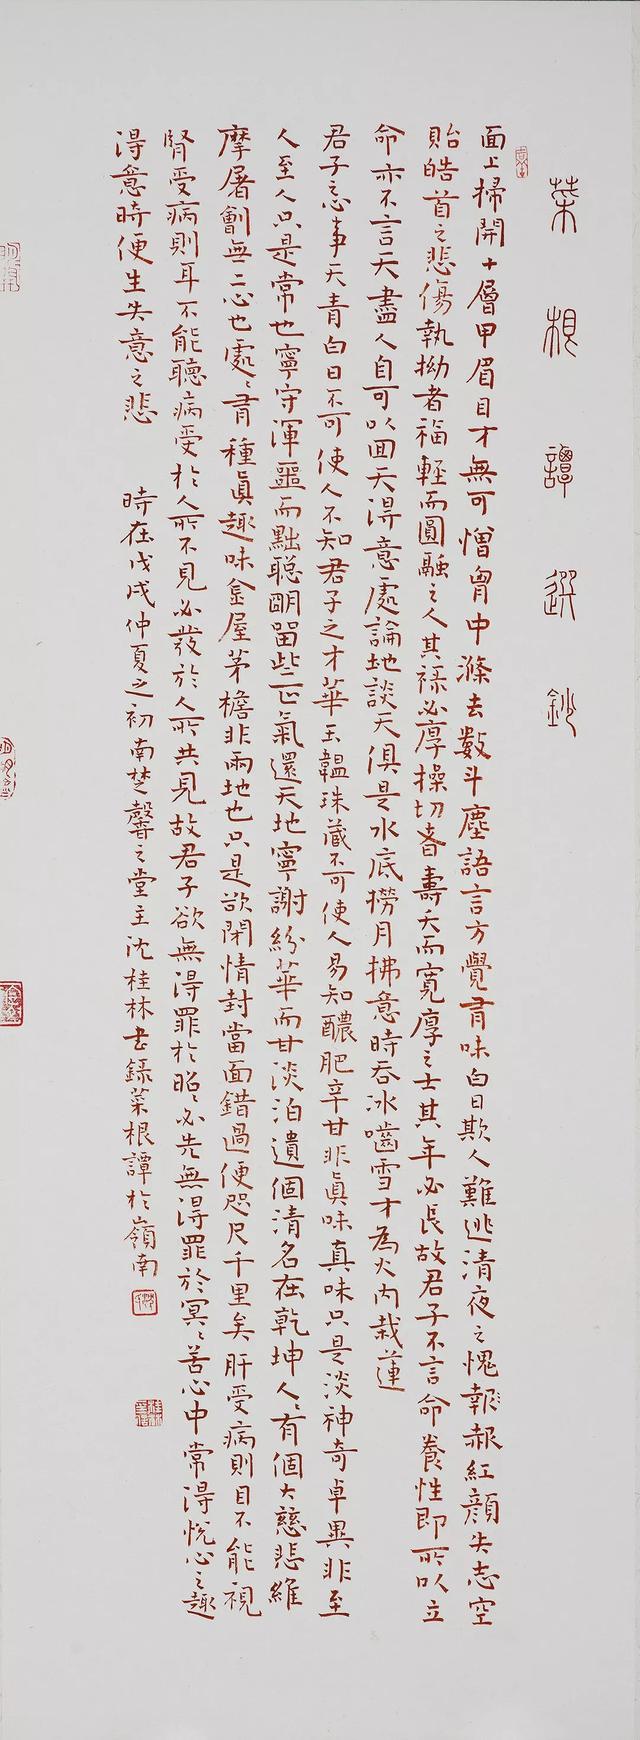 菜根譚選鈔
面上掃開十層甲眉目才無可憎胷中滌去數斗塵語言方覺有味白日欺人難逃清夜之愧報赧紅顔失志空
貽皓首之悲傷執拗者福輕而圓融之人其祿必厚操切者壽夭而寬厚之士其年必長故君子不言命養性即所以立
命亦不言天盡人自可以回天得意處論地談天俱是水底撈月拂意時吞冰嚙雪才為火內栽蓮
君子忘事天青白日不可使人不知君子之才華玉韞珠藏不可使人易知醲肥辛甘非眞味真味只是淡神奇卓異非至
人至人只是常也寧守渾噩而黜聡明畱些正氣還天地寧謝紛華而甘淡泊遺個清名在乾坤人〻有個大慈悲維
摩屠劊無二心也處〻有種眞趣味金屋茅檐非兩地也只是欲閉情封當面錯過便咫尺千里矣肝受病則目不能視
腎受病則耳不能聽病受於人所不見必發於人所共見故君子欲無得罪於昭〻必先無得罪於冥〻苦心中常得悅心之趣
得意時便生失意之悲　時在戊戌仲夏之初南楚馨之堂主沈桂林書錄菜根譚於嶺南